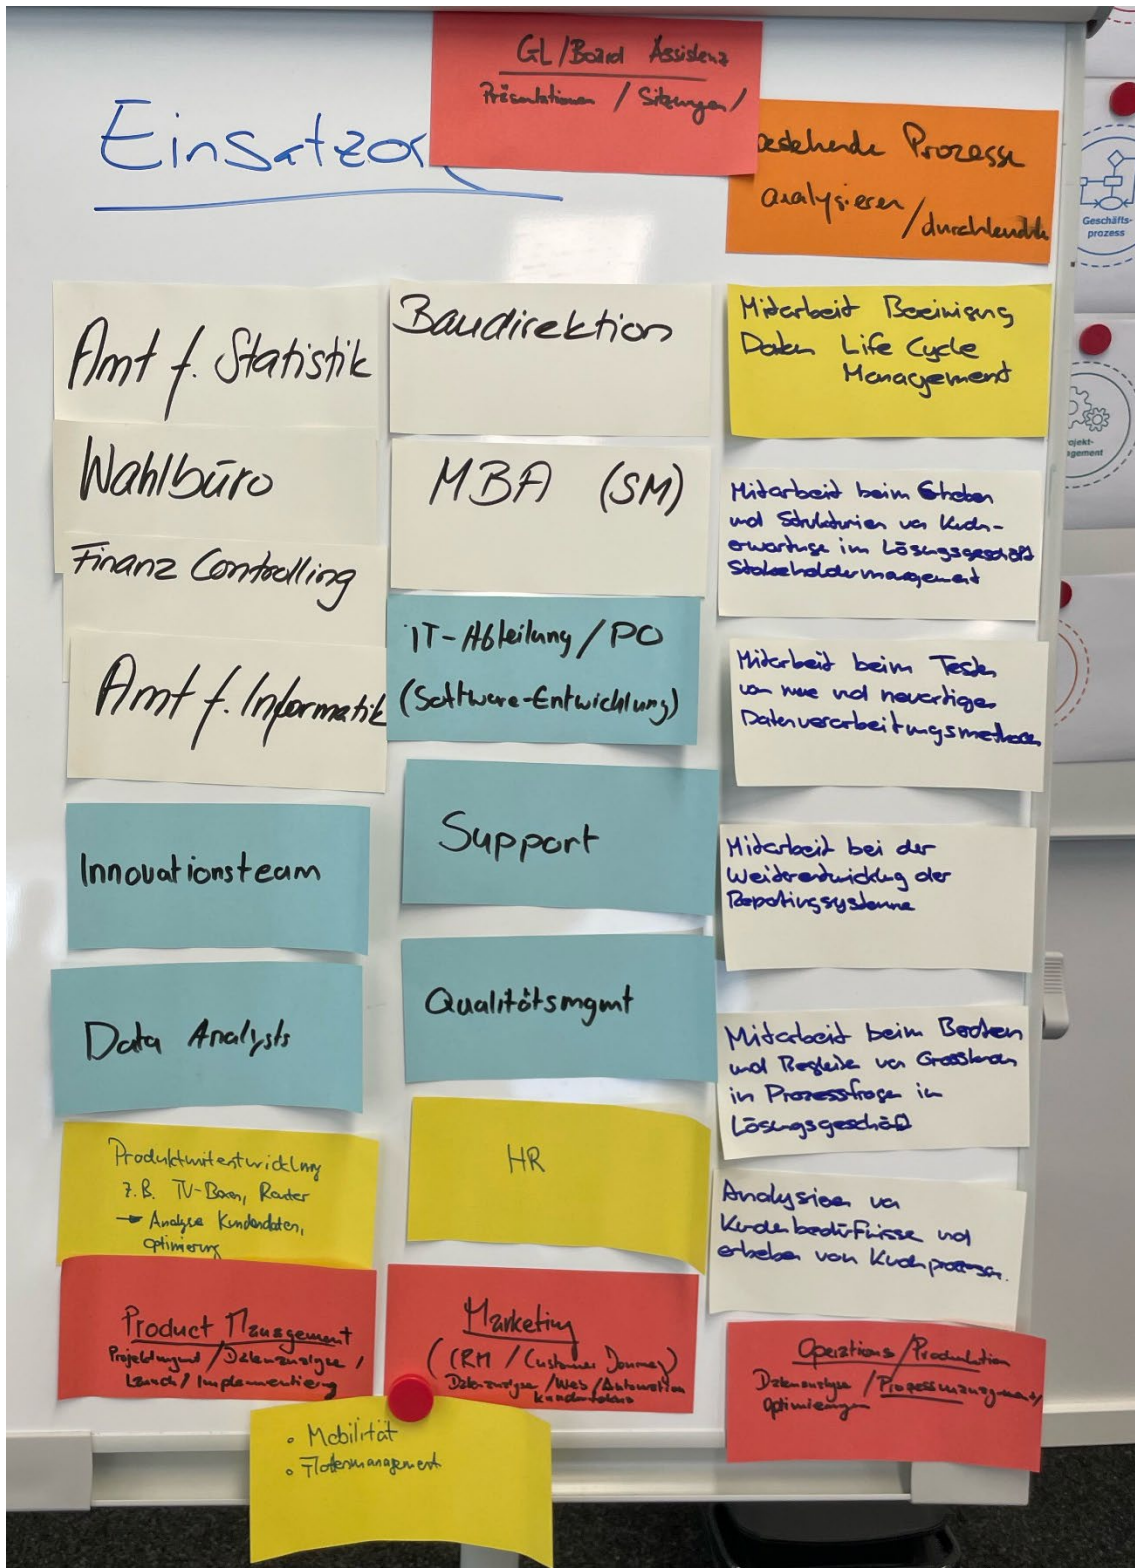 GL/Board Assistenz
Präsentationen / Sitzungen /
Einsatzor
bestehende Prozesse
analysieren/durchleuchten
Geschäfts-
prozess
Amt f. Statistik
Wahlbüro
Finanz Controlling
Amt f. Informatik
Innovationsteam
Data Analysts
Produktmitentwicklung
z.B. TV-Boxen, Router
→ Analyse Kundendaten,
optimierung
Product Management
Projektmgmt/Datenanalyse/
Launch/Implementierung
Baudirektion
MBA (SM)
IT-Abteilung/PO
(Software-Entwicklung)
Support
Qualitätsmgmt
HR
Marketing
(CRM / Customer Journey)
Datenanalyse/Web/Automation
• Mobilität
• Flottenmanagement
Mitarbeit Bereinigung
Daten Life Cycle
Management
Mitarbeit beim Erheben
und Strukturieren von Kunden-
erwartungen im Lösungsgeschäft
Stakeholdermanagement
Mitarbeit beim Testen
von neuen und neuartigen
Datenverarbeitungsmethoden
Mitarbeit bei der
Weiterentwicklung der
Reportingsysteme
Mitarbeit beim Beraten
und Begleiten von Grosskunden
in Prozessfragen im
Lösungsgeschäft
Analysieren von
Kundenbedürfnissen und
erheben von Kundenprozessen.
Operations/Produktion
Datenanalyse / Prozessmanagement/
Optimierungen
ojekt-
agement